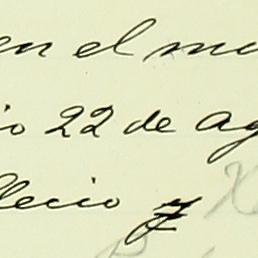 en el mo
io 22 de ag
llecio y